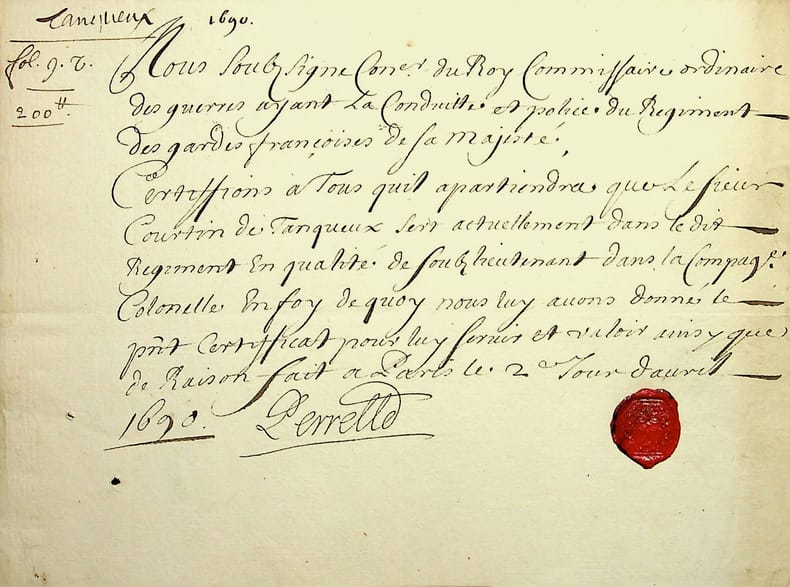 Tanqueux 1690.
fol. 9. v.
200 ₶.
Nous Soubz Signe Coner. du Roy Commissaire ordinaire
des guerres ayant La Conduitte et police du Regiment
des gardes françoises de sa majesté,
Certiffions à Tous quil apartiendra que Le sieur
Courtin de Tanqueux sert actuellement dans le dit
Regiment En qualité de soubz lieutenant dans la Compage.
Colonelle En foy de quoy nous luy auons donné le
pnt Certificat pour luy seruir et valoir ainsy que
de Raison fait a Paris le 2e Jour dauril
1690.